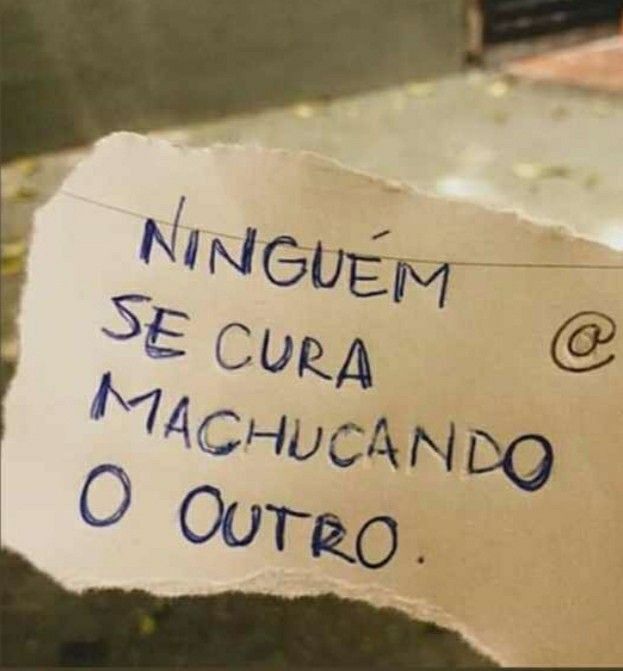 NINGUÉM
SE CURA
@
MACHUCANDO
O OUTRO.